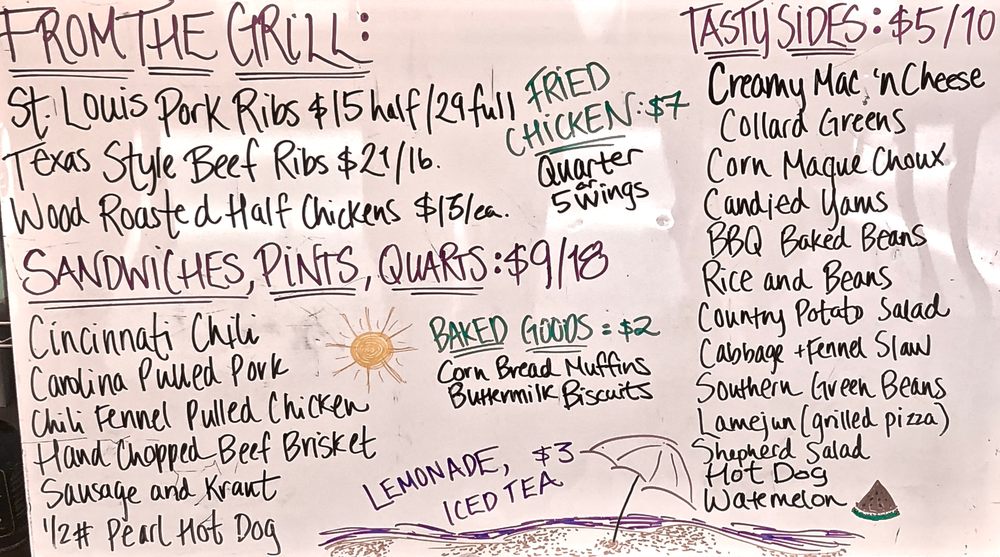 FROM THE GRILL:
St. Louis Pork Ribs $15 half/29 full
Texas Style Beef Ribs $21/lb.
Wood Roasted Half Chickens $13/ea.
FRIED
CHICKEN: $7
Quarter
or
5 wings
SANDWICHES, PINTS, QUARTS: $9/18
Cincinnati Chili
Carolina Pulled Pork
Chili Fennel Pulled Chicken
Hand Chopped Beef Brisket
Sausage and Kraut
1/2# Pearl Hot Dog
BAKED GOODS = $2
Corn Bread Muffins
Buttermilk Biscuits
LEMONADE, $3
ICED TEA
TASTY SIDES: $5/10
Creamy Mac 'n Cheese
Collard Greens
Corn Maque Choux
Candied Yams
BBQ Baked Beans
Rice and Beans
Country Potato Salad
Cabbage + Fennel Slaw
Southern Green Beans
Lamejun (grilled pizza)
Shepherd Salad
Hot Dog
Watemelon